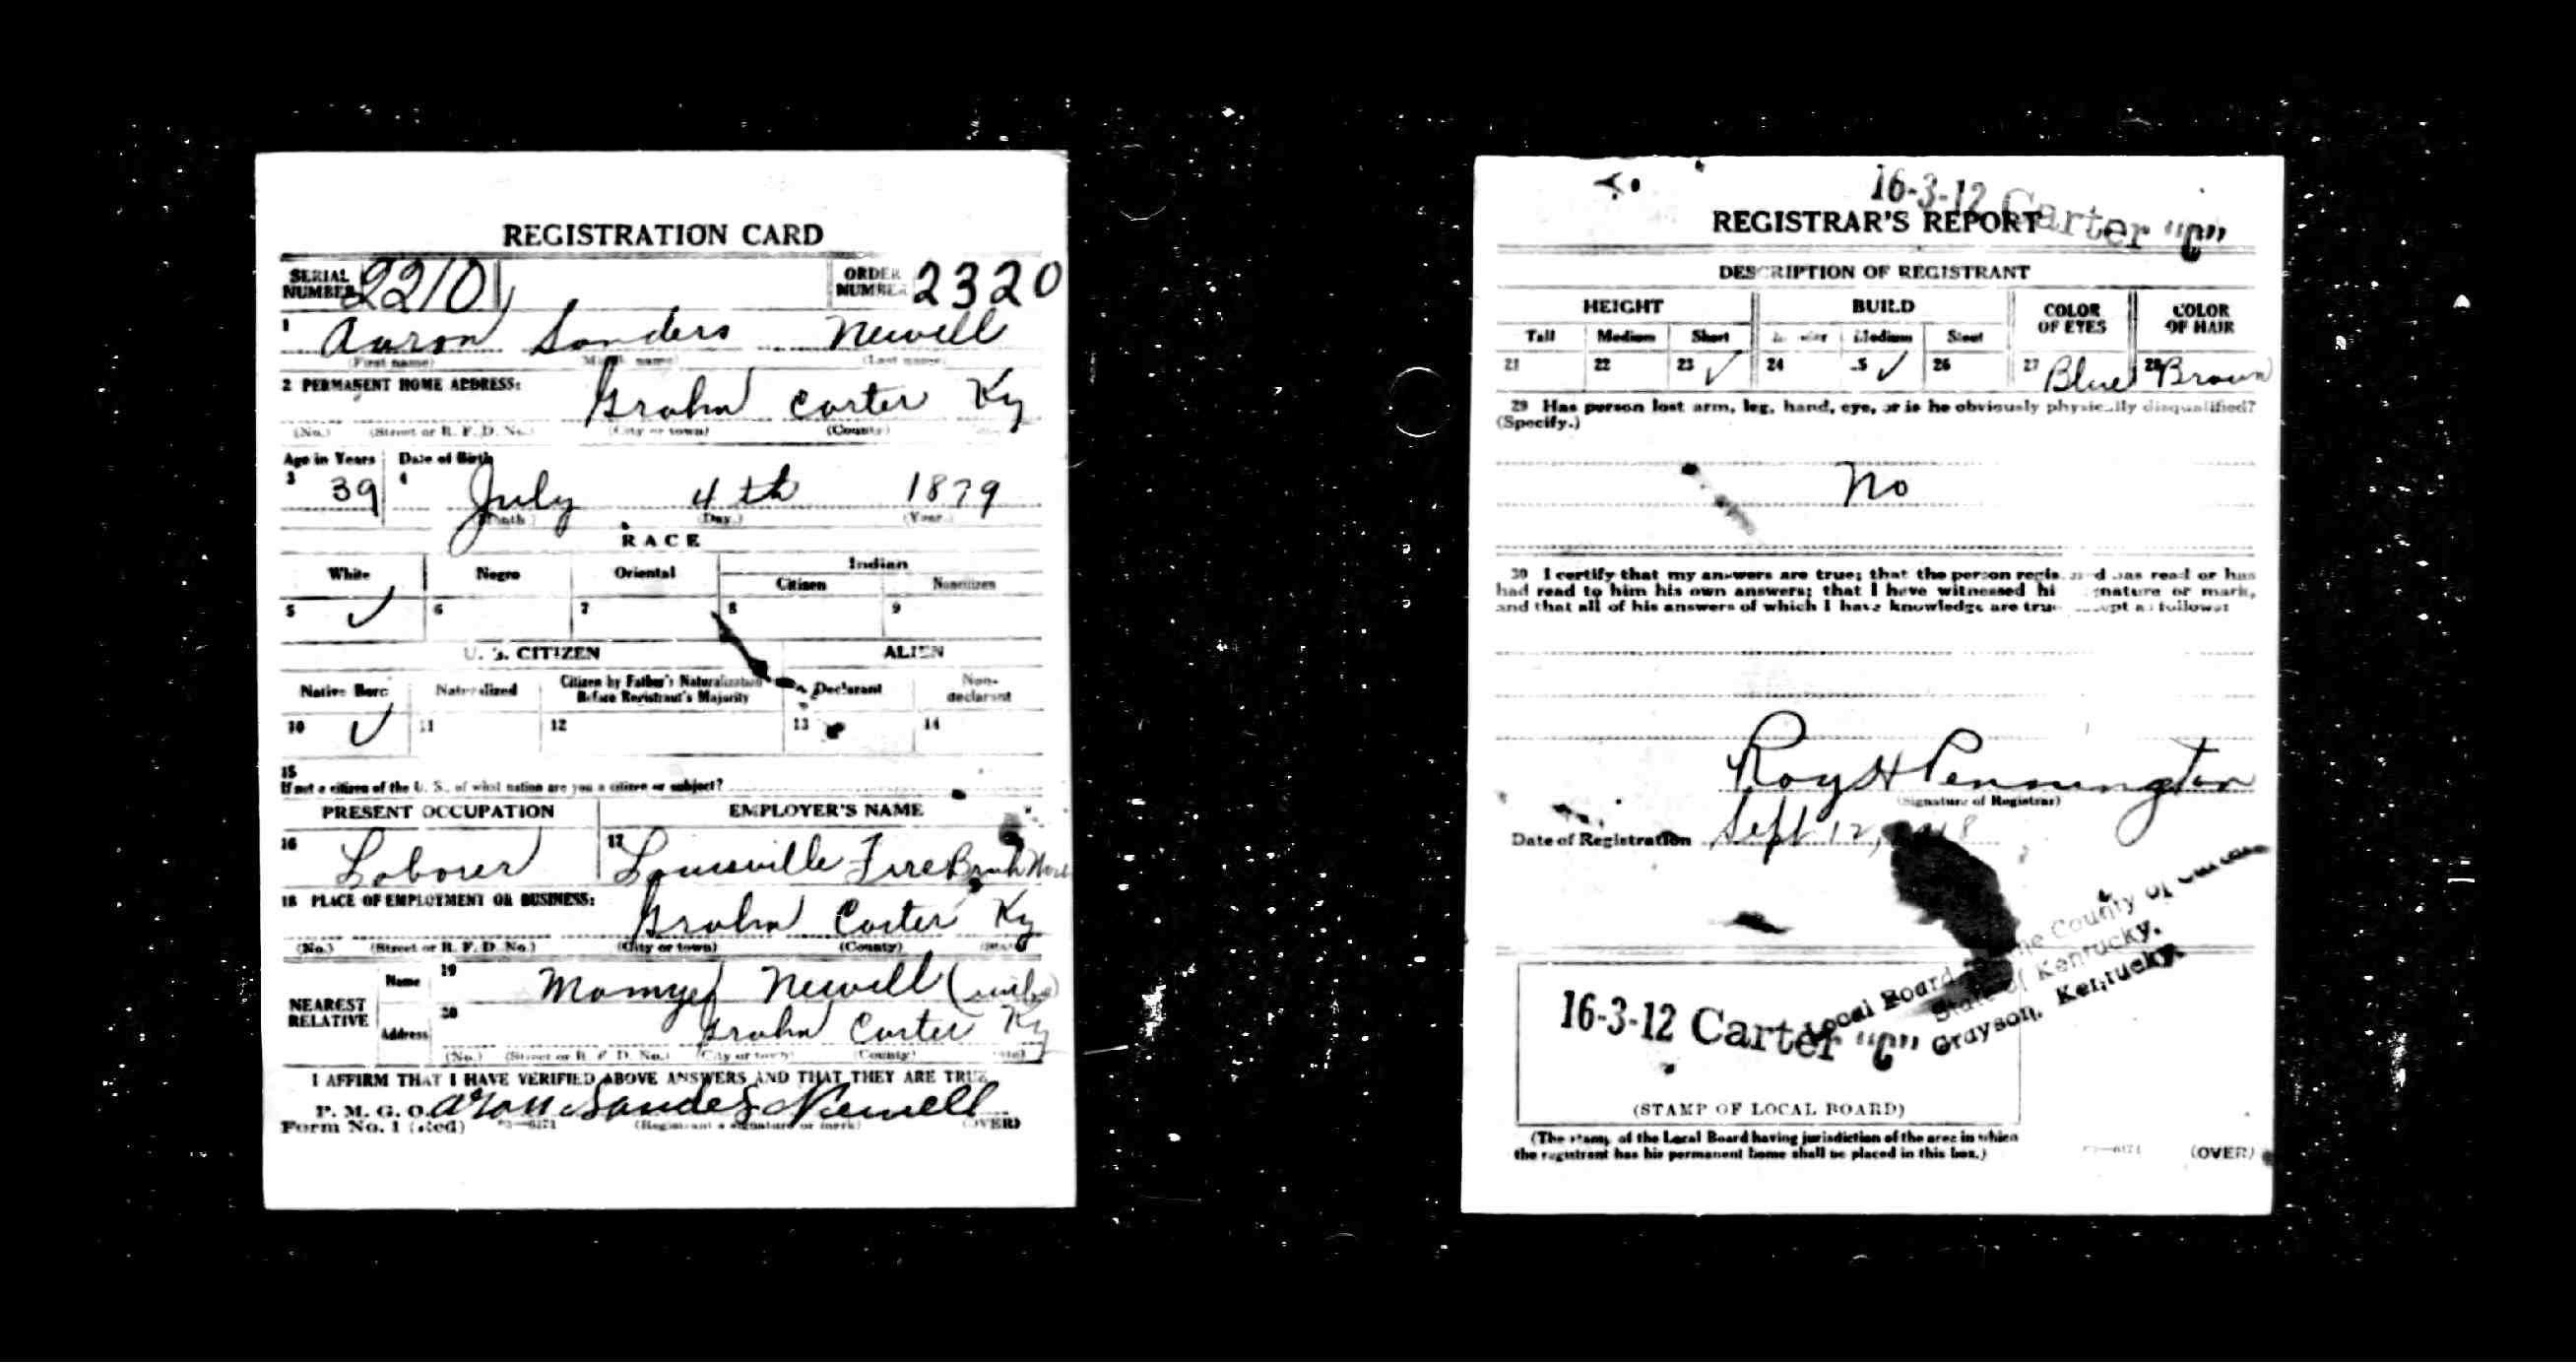 REGISTRATION CARD
SERIAL NUMBER 2210
ORDER NUMBER 2320
1 Aaron Sanders Newell
(First name) (Middle name) (Last name)
2 PERMANENT HOME ADDRESS:
Grahn Carter Ky
(No.) (Street or R. F. D. No.) (City or town) (County)
Age in Years Date of Birth
3 39 4 July 4th 1879
(Month) (Day) (Year)
RACE
White Negro Oriental Indian
Citizen Noncitizen
5 ✓ 6 7 8 9
U. S. CITIZEN ALIEN
Native Born Naturalized Citizen by Father's Naturalization Before Registrant's Majority Declarant Non-declarant
10 ✓ 11 12 13 14
15
If not a citizen of the U. S., of what nation are you a citizen or subject?
PRESENT OCCUPATION EMPLOYER'S NAME
16 Laborer 17 Louisville Fire Brick
18 PLACE OF EMPLOYMENT OR BUSINESS:
Grahn Carter Ky
(No.) (Street or R. F. D. No.) (City or town) (County) (State)
NEAREST RELATIVE
Name 19 Newell (wife)
Address 20 Grahn Carter Ky
(No.) (Street or R. F. D. No.) (City or town) (County) (State)
I AFFIRM THAT I HAVE VERIFIED ABOVE ANSWERS AND THAT THEY ARE TRUE
P. M. G. O.
Form No. 1 (Red)
Aron Sandes Newell
(Registrant's signature or mark) (OVER)
16-3-12 Carter "C"
REGISTRAR'S REPORT
DESCRIPTION OF REGISTRANT
HEIGHT BUILD COLOR OF EYES COLOR OF HAIR
Tall Medium Short Medium Stout
21 22 23 ✓ 24 25 ✓ 26 27 Blue 28 Brown
29 Has person lost arm, leg, hand, eye, or is he obviously physically disqualified?
(Specify.)
No
30 I certify that my answers are true; that the person registered has read or has
had read to him his own answers; that I have witnessed his signature or mark,
and that all of his answers of which I have knowledge are true, except as follows:
Roy H Pennington
(Signature of Registrar)
Date of Registration Sept 12, 1918
Local Board for the County of Carter
State of Kentucky.
Grayson, Kentucky.
16-3-12 Carter "C"
(STAMP OF LOCAL BOARD)
(The stamp of the Local Board having jurisdiction of the area in which
the registrant has his permanent home shall be placed in this box.)
(OVER)